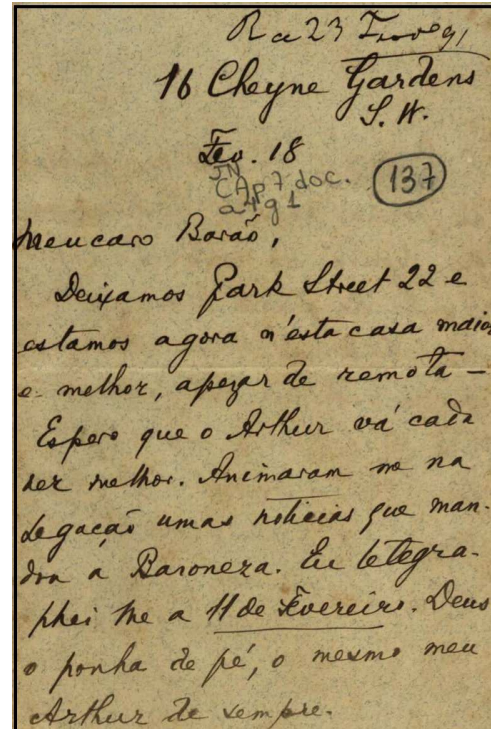 R a 23 Fevo 91
16 Cheyne Gardens
S. W.
Fev. 18
JN
CAp 7 doc.
137
Meu caro Barão,
Deixamos Park Street 22 e
estamos agora n'esta casa maior
e melhor, apezar de remota —
Espero que o Arthur vá cada
vez melhor. Animaram me na
Legação umas noticias que man-
dou á Baroneza. Eu telegra-
phei lhe a 11 de Fevereiro. Deus
o ponha de pé, o mesmo meu
Arthur de sempre.